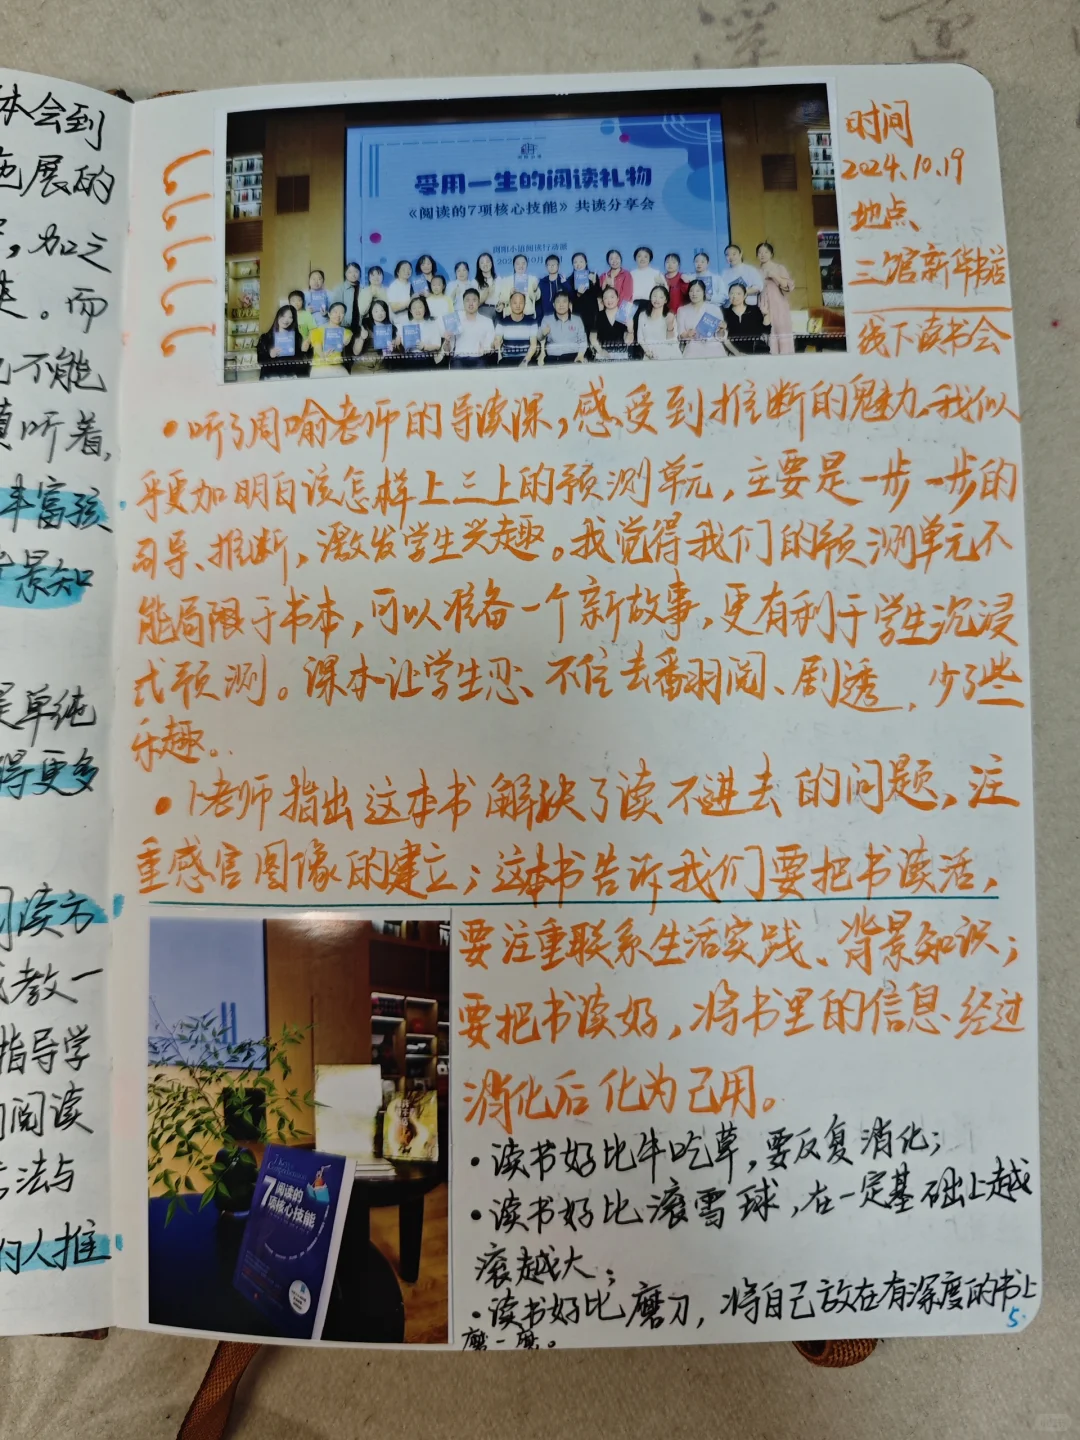 体会到
施展的
,加之
。而
不能
听着,
丰富孩
背景知
是单纯
得更多
阅读方
教一
指导学
阅读
方法与
的人推
受用一生的阅读礼物
《阅读的7项核心技能》共读分享会
时间
2024.10.19
地点、
三馆新华书店
线下读书会
•听了周喻老师的导读课,感受到推断的魅力。我似
乎更加明白该怎样上三上的预测单元,主要是一步一步的
引导、推断,激发学生兴趣。我觉得我们的预测单元不
能局限于书本,可以准备一个新故事,更有利于学生沉浸
式预测。课本让学生忍不住去翻阅、剧透,少了些
乐趣。
•卜老师指出这本书解决了读不进去的问题,注
重感官图像的建立;这本书告诉我们要把书读活,
要注重联系生活实践、背景知识;
要把书读好,将书里的信息经过
消化后化为己用。
7
阅读的
项核心技能
•读书好比牛吃草,要反复消化;
•读书好比滚雪球,在一定基础上越
滚越大;
•读书好比磨刀,将自己放在有深度的书上
磨一磨。
5